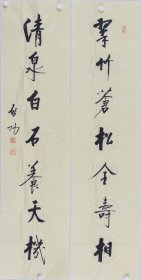 翠竹蒼松全壽相
清泉白石養天機
啟功